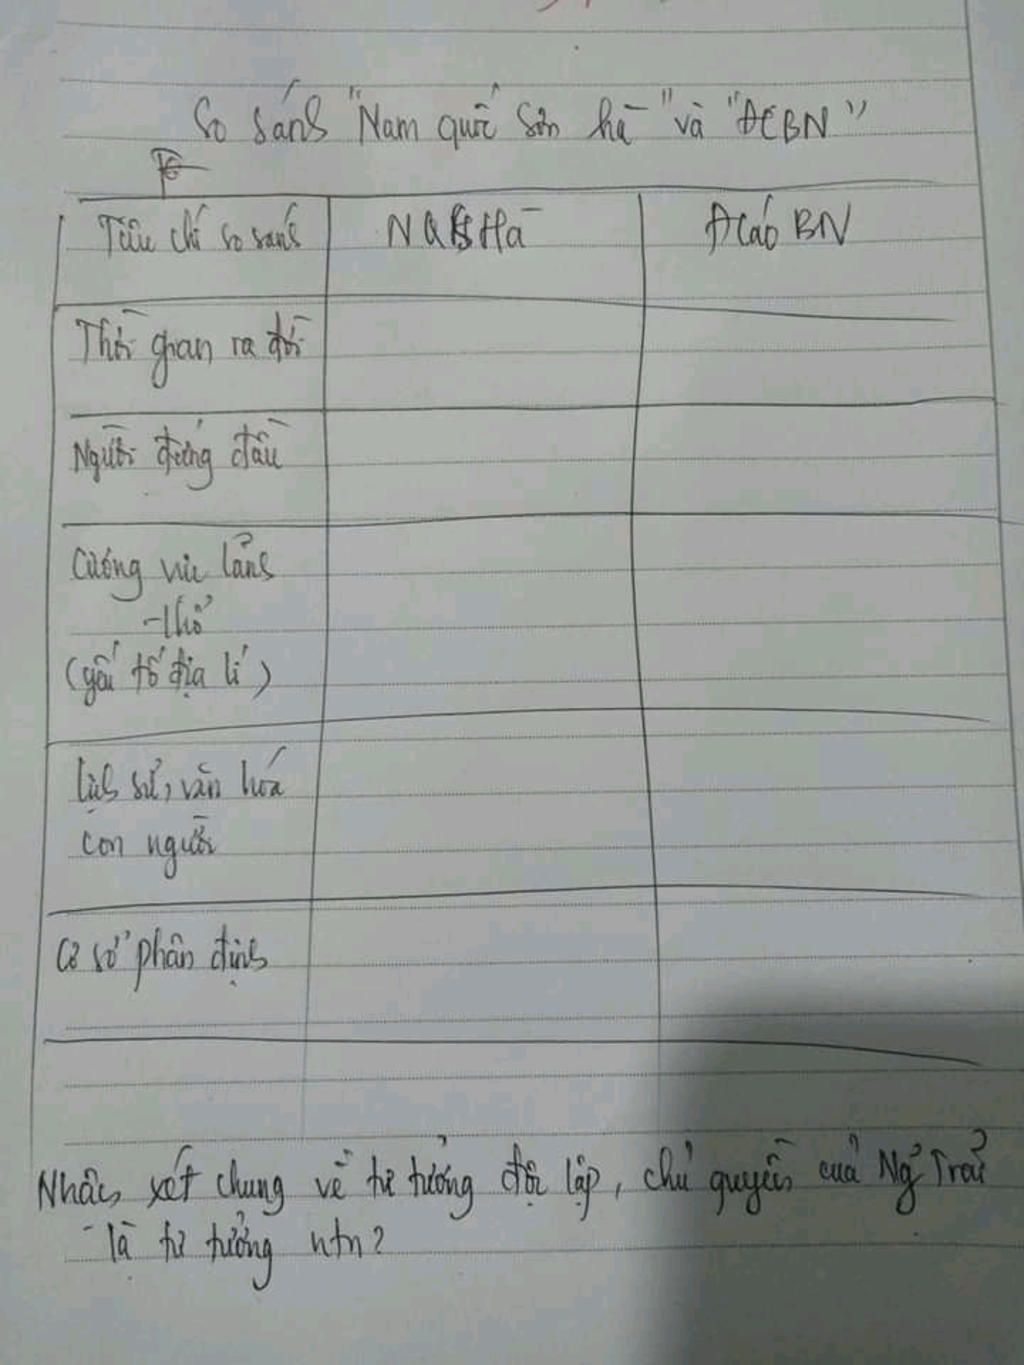 So sánh "Nam quốc Sơn hà" và "ĐCBN"
Tiêu chí so sánh
NQSHà
ĐCáo BN
Thời gian ra đời
Người đứng đầu
Cương vực lãnh
thổ
(yếu tố địa lí)
Lịch sử, văn hóa
con người
Cơ sở phân định
Nhận xét chung về tư tưởng độc lập, chủ quyền của Ng Trãi
là tư tưởng ntn?